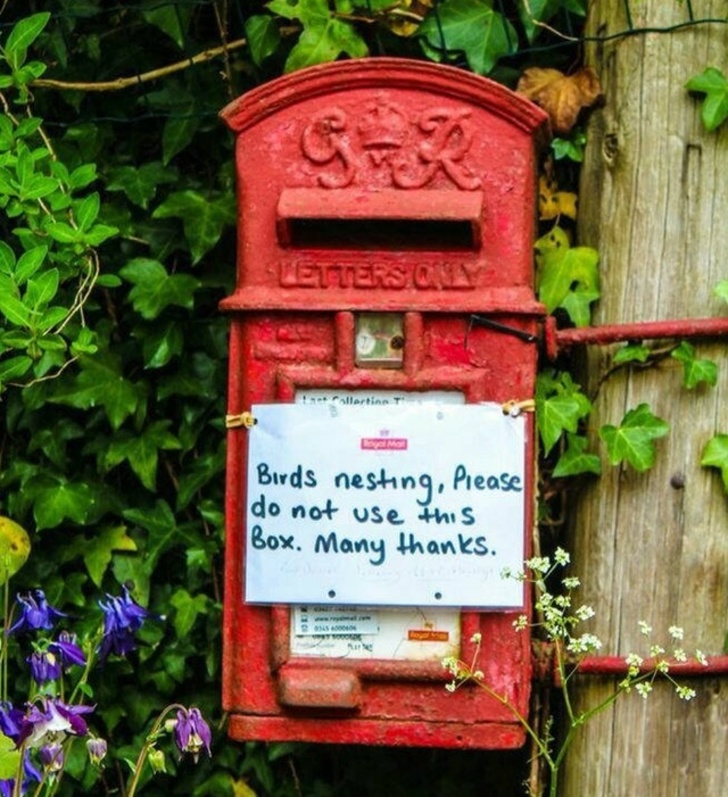 GR
LETTERS ONLY
7
Last Collection
Royal Mail
Birds nesting, Please
do not use this
Box. Many thanks.
www.royalmail.com
0345 6000606
Royal Mail